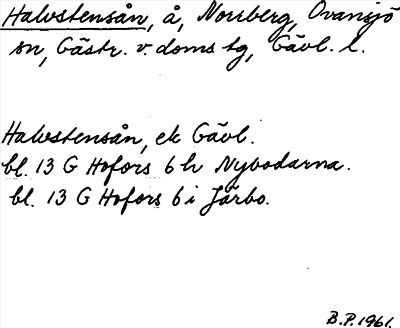 Halvstensån, å, Norrberg, Ovansjö
sn, Gästr. v. doms tg, Gävl. l.
Halvstensån, ek Gävl.
bl. 13 G Hofors 6 h Nybodarna.
bl. 13 G Hofors 6 i Järbo.
B.P. 1961.